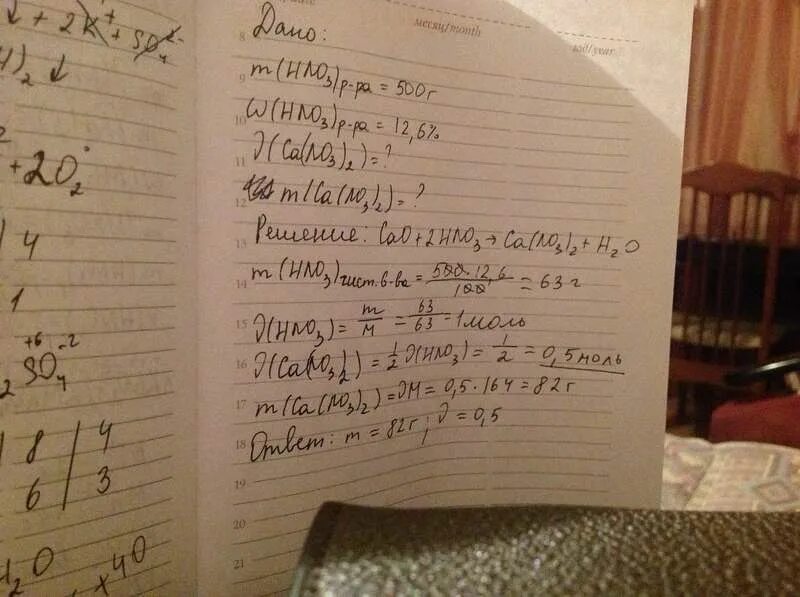 ↓ + 2K⁺ + SO₄²⁻
)₂ ↓
+ 2O₂°
4
1
+6 -2
₂SO₄
8 | 4
6 | 3
₂O
x 40
месяц/month
год/year
8 Дано:
9 m(HNO₃)р-ра = 500г
10 W(HNO₃)р-ра = 12,6%
11 ν(Ca(NO₃)₂) = ?
12 m(Ca(NO₃)₂) = ?
13 Решение: CaO + 2HNO₃ → Ca(NO₃)₂ + H₂O
14 m(HNO₃)чист.в-ва = 500·12,6/100 = 63 г
15 ν(HNO₃) = m/M = 63/63 = 1моль
16 ν(Ca(NO₃)₂) = 1/2 ν(HNO₃) = 1/2 = 0,5 моль
17 m(Ca(NO₃)₂) = νM = 0,5·164 = 82 г
18 Ответ: m = 82г; ν = 0,5
19
20
21